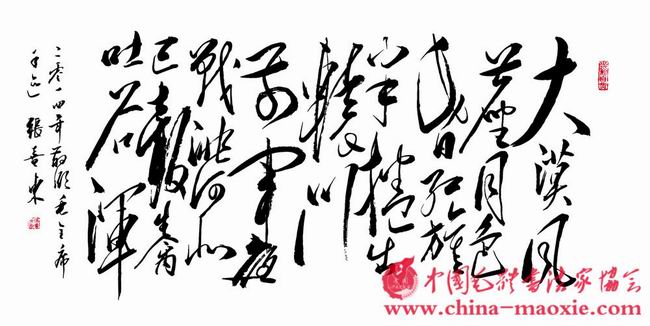 大漠风
尘日色
昏红旗
半卷出
辕门
前军夜
战洮河北
已报生擒
吐谷渾
二零一四年敬临毛主席
手迹
中国毛体书法家协会
www.china-maoxie.com